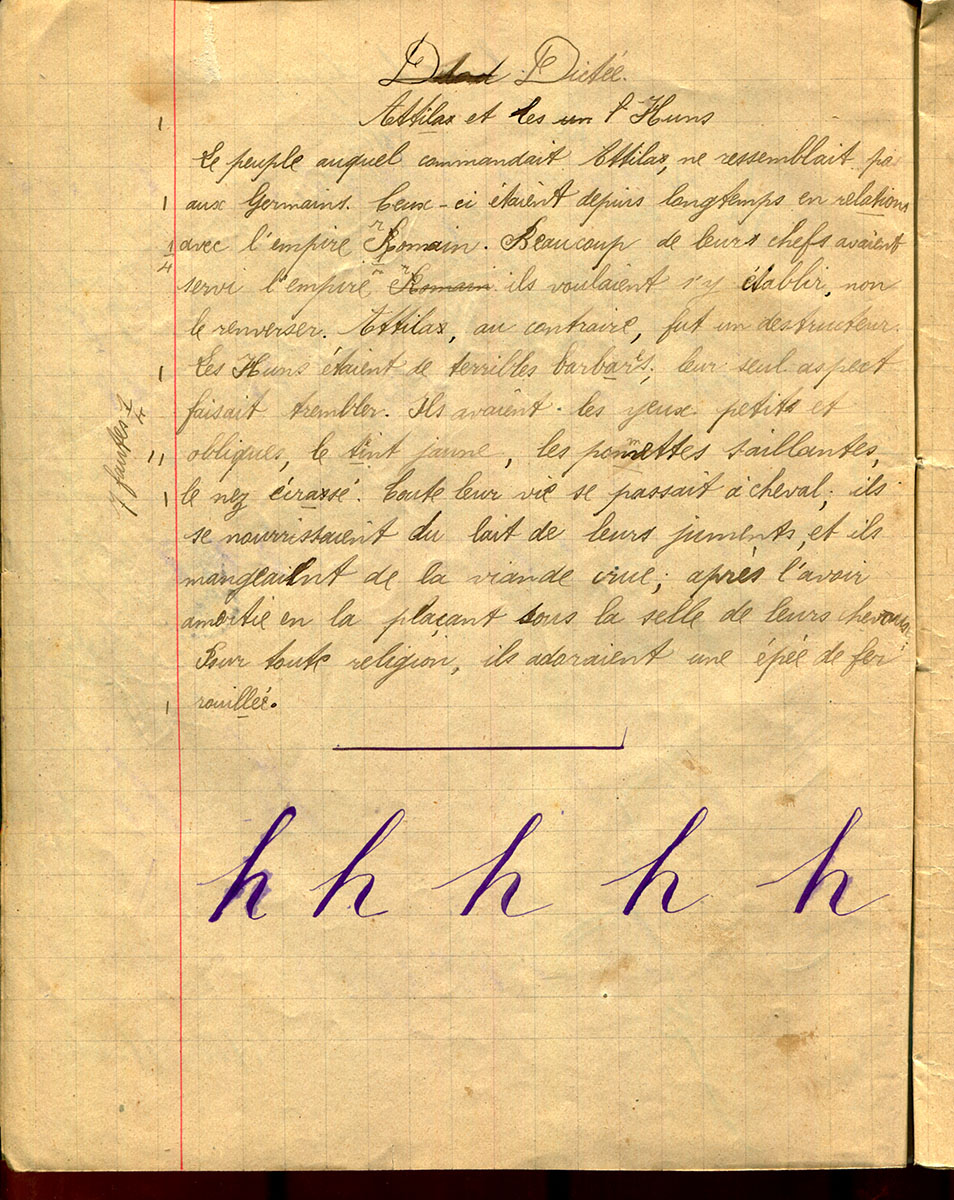 Dictée.
1 Attilax et les un l'Huns
Le peuple auquel commandait Attilax, ne ressemblait pa
1 aux Germains. Ceux-ci étaient depuis longtemps en relations
1/4 avec l'empire Romain. Beaucoup de leurs chefs avaient
servi l'empire Romain ils voulaient s'y établir, non
le renverser. Attilax, au contraire, fut un destructeur.
1 Les Huns étaient de terribles barbars, leur seul aspect
faisait trembler. Ils avaient les yeux petits et
11 obliques, le tint jaune, les pomettes saillantes,
1 le nez écrassé. Toute leur vie se passait à cheval; ils
se nourrissaient du lait de leurs juments, et ils
mangeaient de la viande crue; après l'avoir
amortie en la plaçant sous la selle de leurs chevaux.
Pour toute religion, ils adoraient une épée de fer
1 rouillée.
7 fautes 1/4
h h h h h